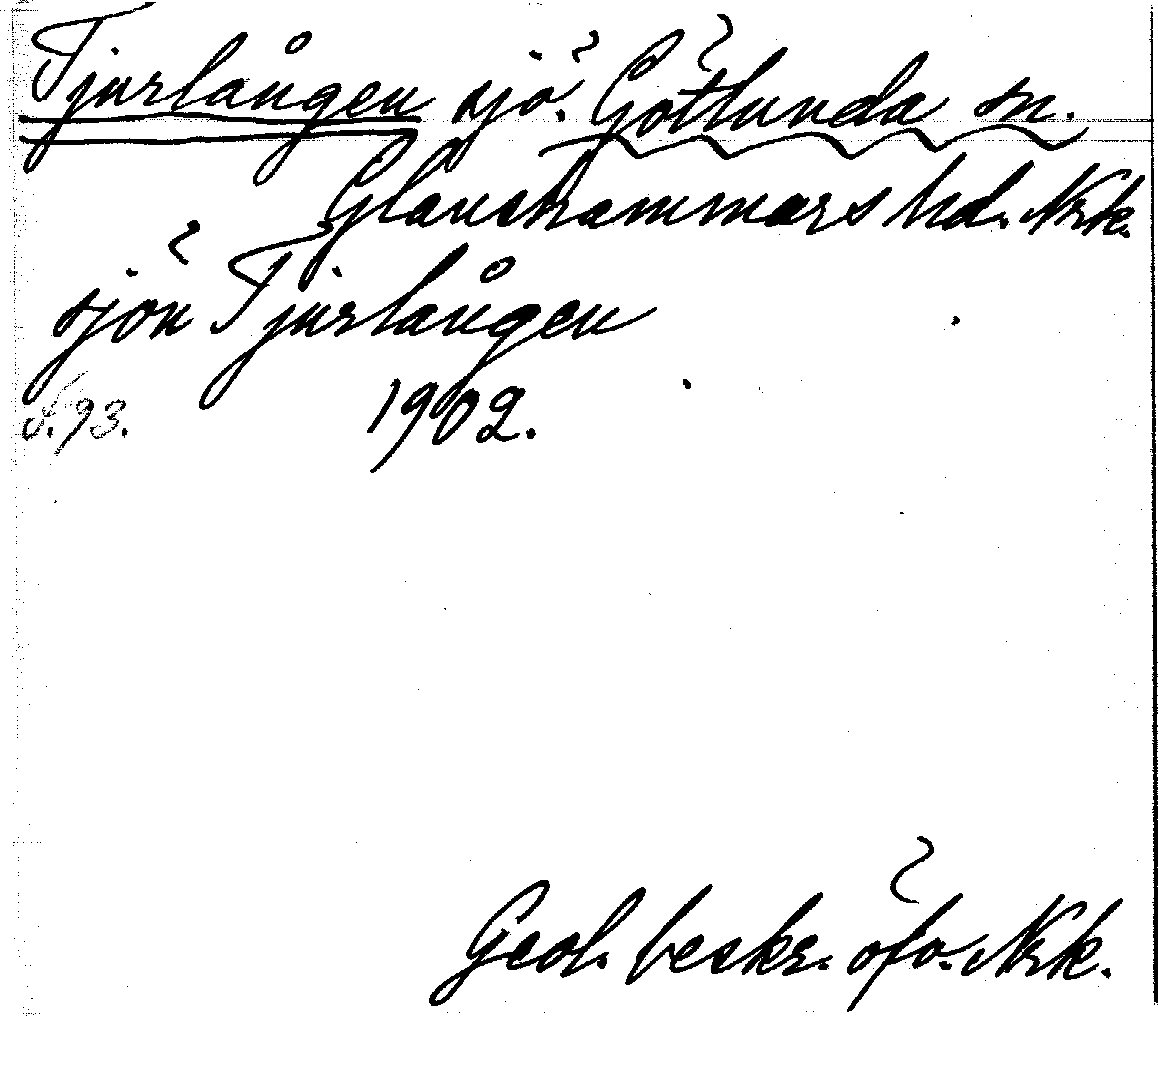 Tjurlången sjö. Götlunda sn.
Glanshammars hd. Nrk.
sjön Tjurlången
s. 93. 1902.
Geol. beskr. öfv. Nrk.